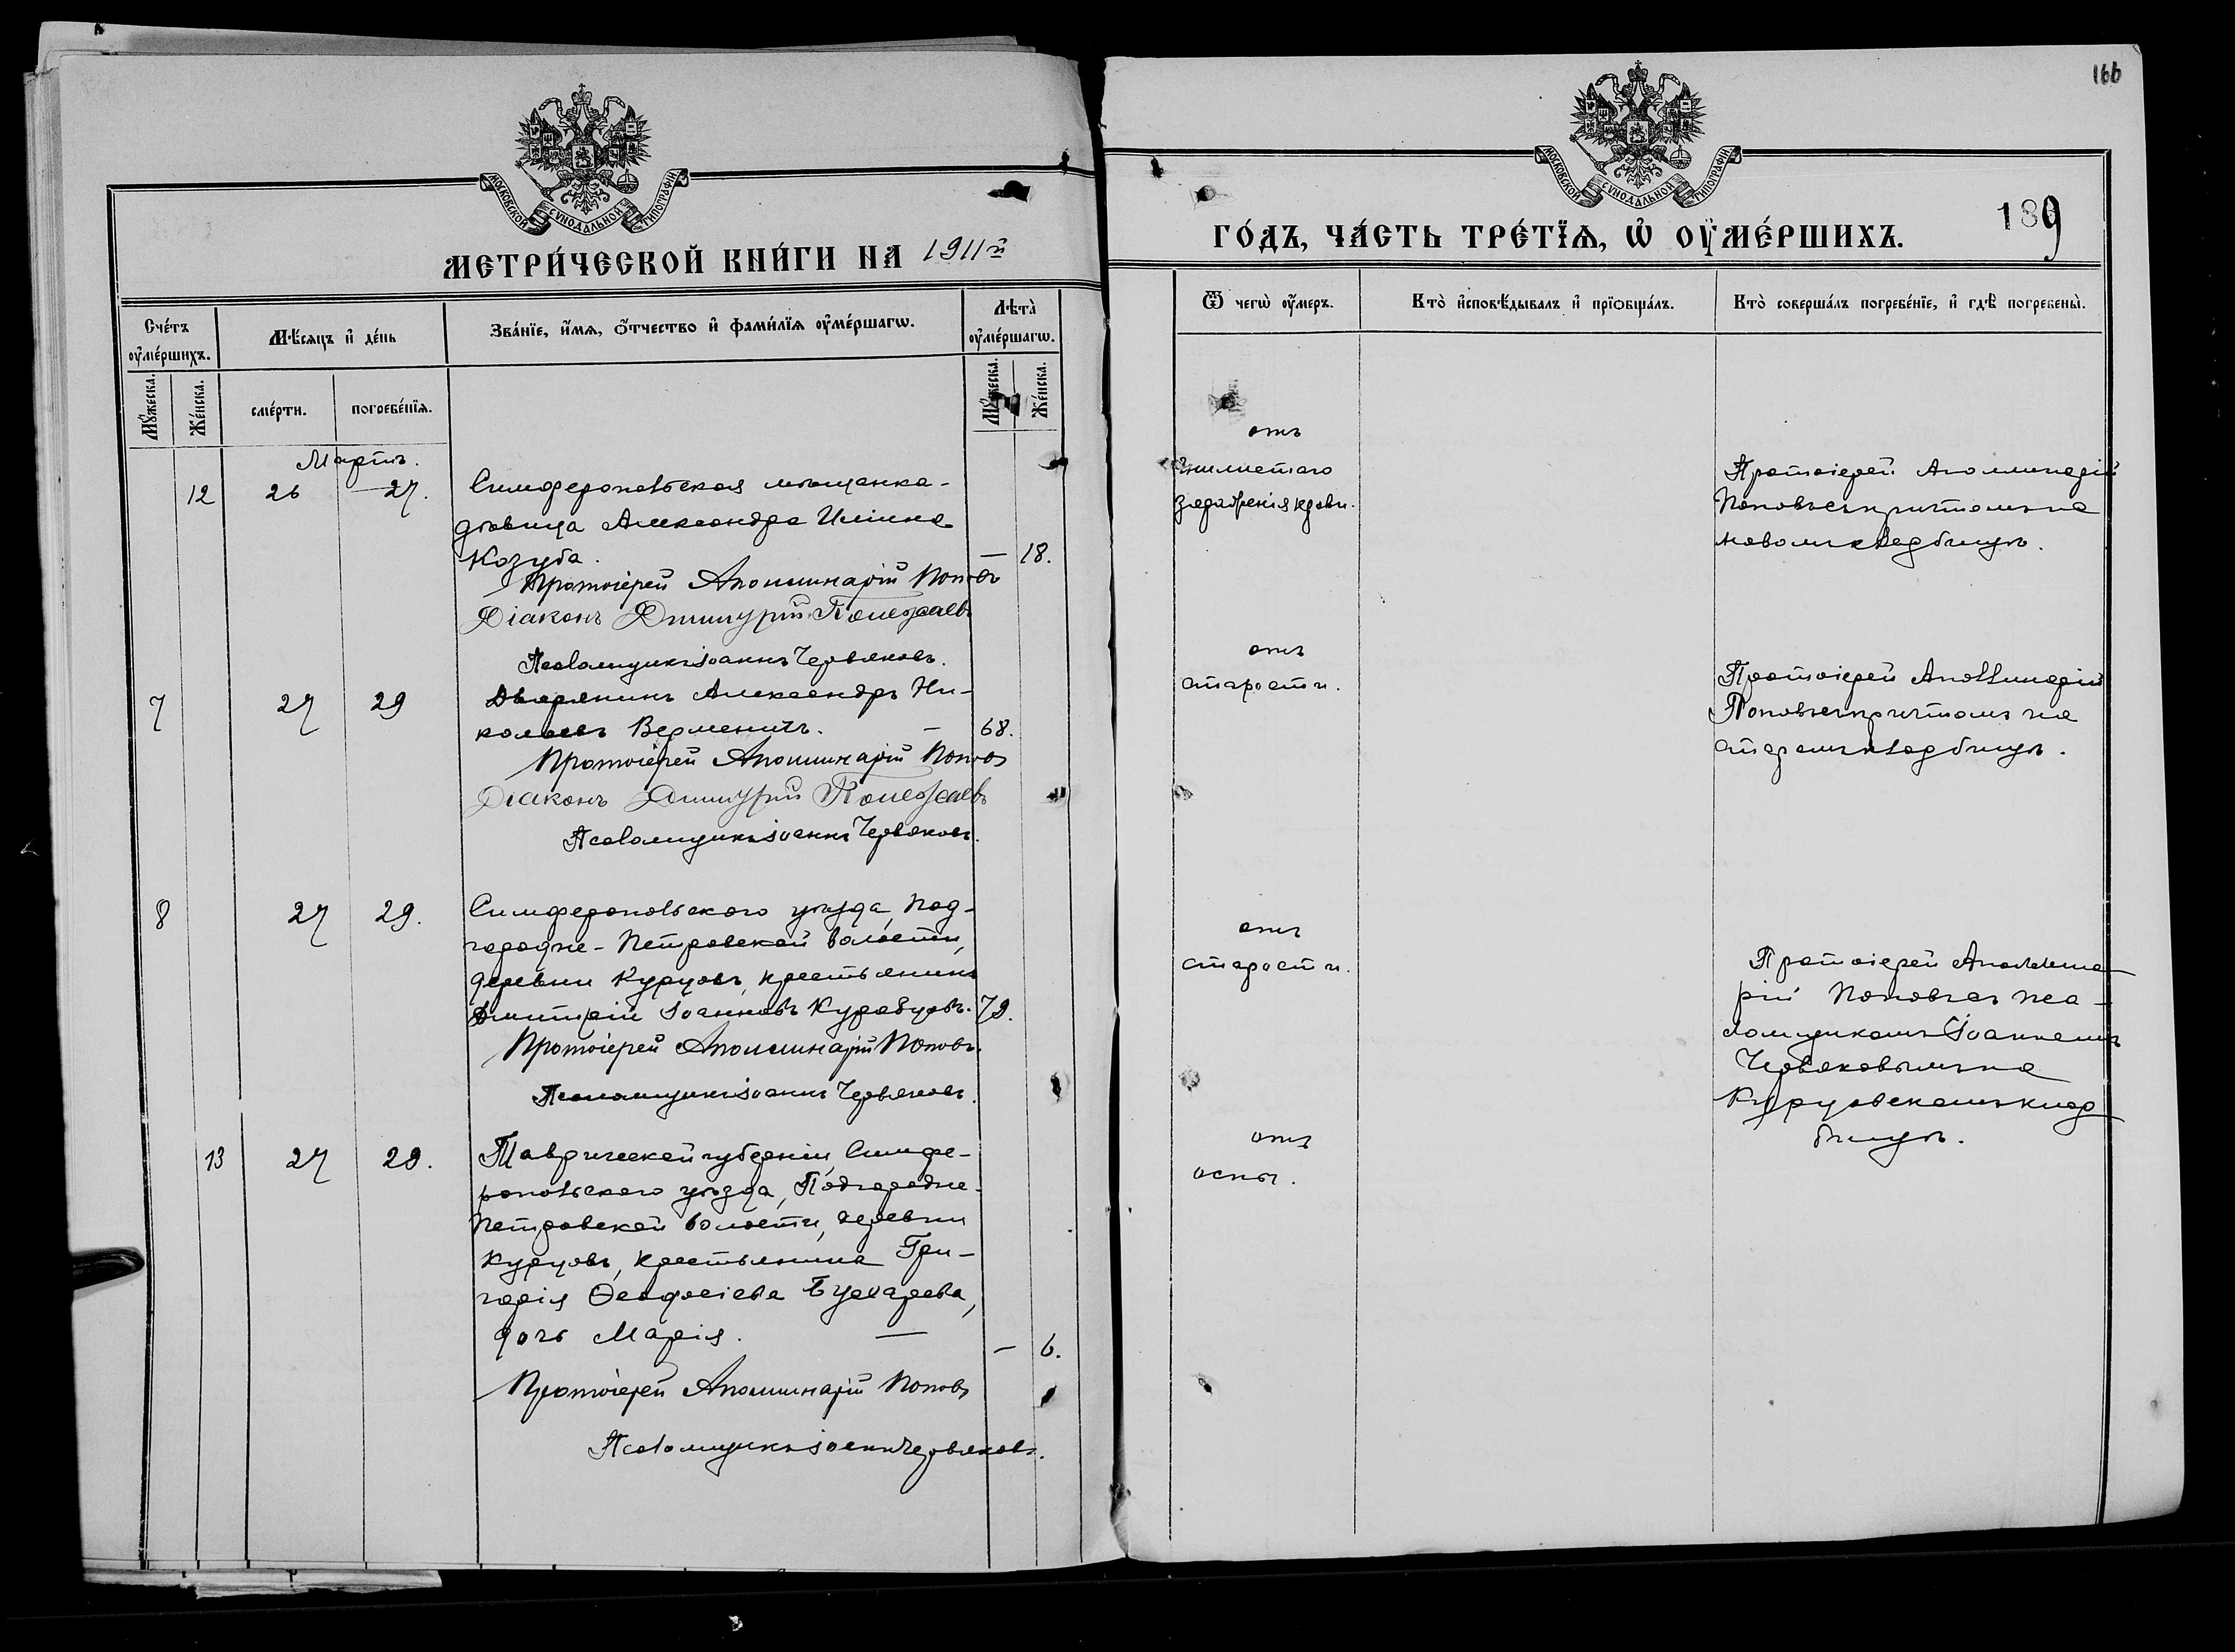 166
МОСКОВСКОЙ СѴНОДАЛЬНОЙ ТИПОГРАФІИ
МОСКОВСКОЙ СѴНОДАЛЬНОЙ ТИПОГРАФІИ
МЕТРИ́ЧЕСКОЙ КНИ́ГИ НА 1911й
ГО́ДЪ, ЧА́СТЬ ТРЕ́ТЇѦ, Ѡ҆ ОУ҆МЕ́РШИХЪ.
189
Сче́тъ оу҆ме́ршихъ.
Мѣ́сяцъ и҆ де́нь
Зва́нїе, и҆́мѧ, ѻ҆́тчество и҆ фами́лїѧ оу҆ме́ршагѡ.
Лѣ́та̀ оу҆ме́ршагѡ.
Ѿ чегѡ̀ оу҆́меръ.
Кто̀ и҆сповѣ́дывалъ и҆ прїѡбща́лъ.
Кто̀ соверша́лъ погребе́нїе, и҆ гдѣ̀ погребены̀.
Мꙋ́жеска.
Же́нска.
сме́рти.
погребе́нїѧ.
Мꙋ́жеска.
Же́нска.
Мартъ.
12 26 27.
Симферопольская мѣщанка-
дѣвица Александра Ильина
Козуба. — 18.
Протоіерей Аполлинарій Поповъ
Діаконъ Димитрій
Псаломщикъ Іоаннъ Червяковъ.
отъ
гнилостнаго
зараженія крови.
Протоіерей Аполлинарій
Поповъ съ причтомъ на
новомъ кладбищѣ.
7 27 29
Дворянинъ Александръ Ни-
колаевъ Верменичъ. — 68.
Протоіерей Аполлинарій Поповъ
Діаконъ Димитрій
Псаломщикъ Іоаннъ Червяковъ.
отъ
старости.
Протоіерей Аполлинарій
Поповъ съ причтомъ на
старомъ кладбищѣ.
8 27 29.
Симферопольского уѣзда, Под-
городне-Петровской волости,
деревни Курцовъ, крестьянинъ
Димитрій Іоанновъ Куравцовъ. 79.
Протоіерей Аполлинарій Поповъ.
Псаломщикъ Іоаннъ Червяковъ.
отъ
старости.
Протоіерей Аполлина-
рій Поповъ съ пса-
ломщикомъ Іоанномъ
Червяковымъ на
Курцовскомъ клад-
бищѣ.
13 27 29.
Таврической губерніи, Симфе-
ропольского уѣзда, Подгородне-
Петровской волости, деревни
Курцовъ, крестьянина Гри-
горія Ѳеодосіева
дочь Марія. — — 6.
Протоіерей Аполлинарій Поповъ
Псаломщикъ Іоаннъ Червяковъ.
отъ
оспы.